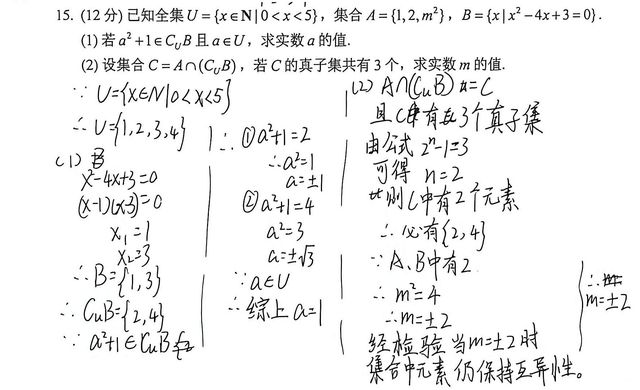 15. (12分) 已知全集U={x∈N|0<x<5}，集合A={1,2,m²}，B={x|x²-4x+3=0}.
(1) 若a²+1∈C_UB且a∈U，求实数a的值.
(2) 设集合C=A∩(C_UB)，若C的真子集共有3个，求实数m的值.
∵ U={x∈N|0<x<5}
∴ U={1,2,3,4}
(1) B
x²-4x+3=0
(x-1)(x-3)=0
x₁=1
x₂=3
∴ B={1,3}
∴ CuB={2,4}
∵ a²+1∈CuB
∴ ①a²+1=2
∴a²=1
a=±1
②a²+1=4
a²=3
a=±√3
∵ a∈U
∴ 综上 a=1
(2) A∩(CuB)=C
且C中有3个真子集
由公式 2ⁿ-1=3
可得 n=2
此则C中有2个元素
∴ 必有{2,4}
∵ A、B中有2
∴ m²=4
∴m=±2
经检验 当m=±2时
集合中元素仍保持互异性。
∴m
m=±2